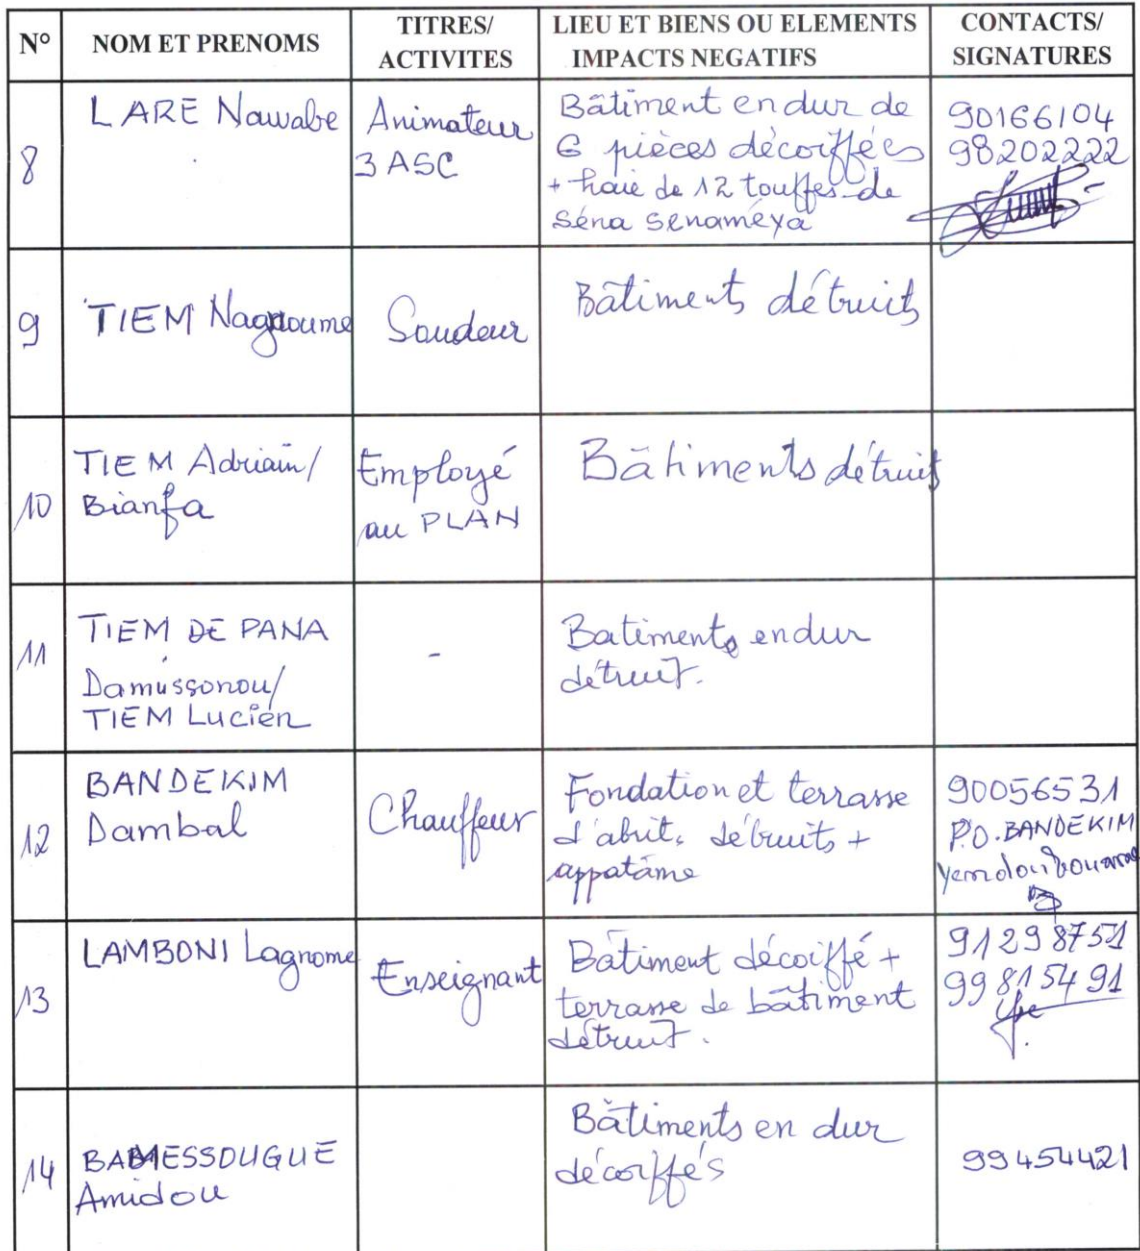 N°
NOM ET PRENOMS
TITRES/
ACTIVITES
LIEU ET BIENS OU ELEMENTS
IMPACTS NEGATIFS
CONTACTS/
SIGNATURES
8
LARE Nawabe
Animateur
3 ASC
Bâtiment en dur de
6 pièces décoiffées
+ haie de 12 touffes de
séna senaméya
90166104
98202222
9
TIEM Nagnoume
Soudeur
Bâtiments détruits
10
TIEM Adriain/
Bianfa
Employé
au PLAN
Bâtiments détruits
11
TIEM DE PANA
Damussonou/
TIEM Lucien
-
Batiments en dur
détruit.
12
BANDEKIM
Dambal
Chauffeur
Fondation et terrasse
d'abrit, détruits +
appatâme
90056531
P.O. BANDEKIM
13
LAMBONI Lagnome
Enseignant
Bâtiment décoiffé +
terrasse de bâtiment
détruit.
91298751
99815491
14
BAMESSOUGUE
Amidou
Bâtiments en dur
décoiffés
99454421